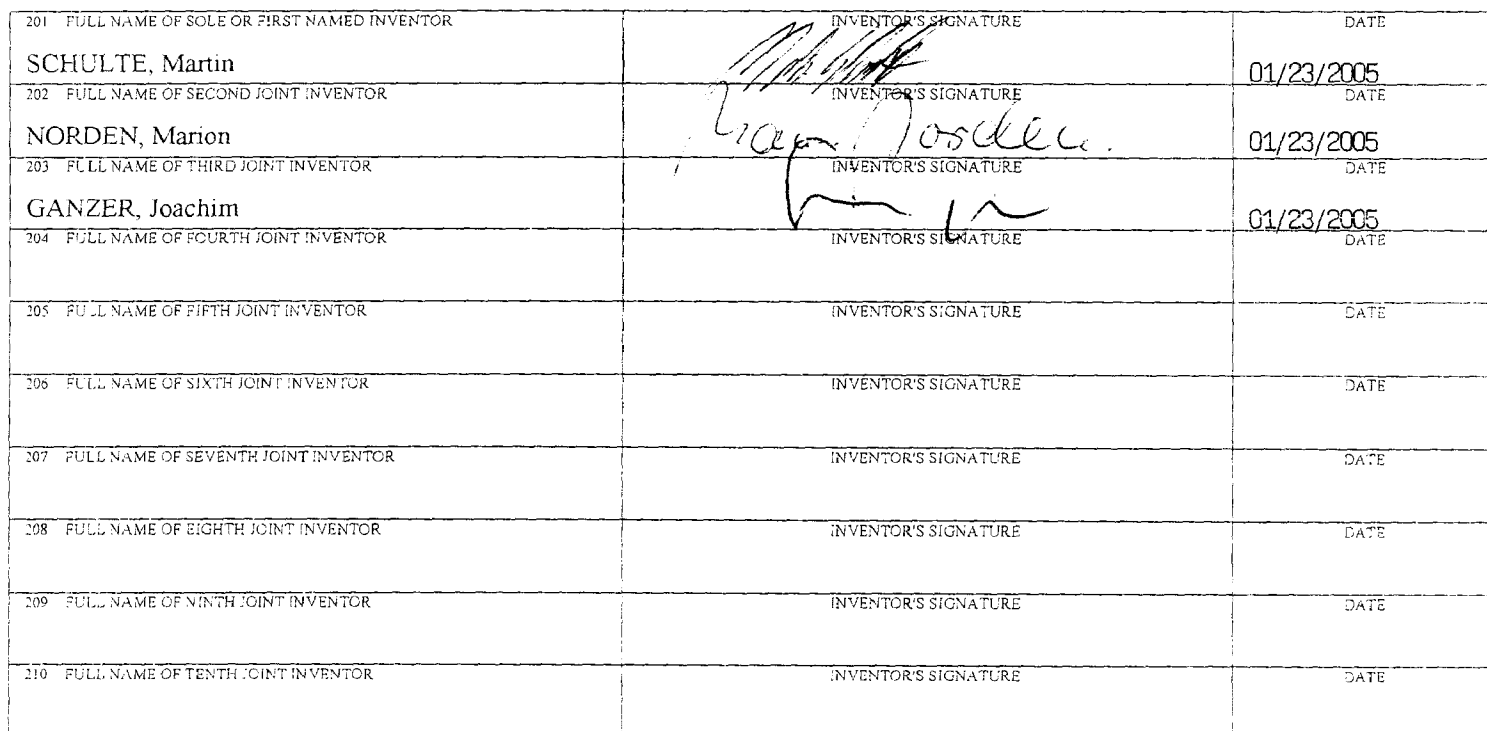 201 FULL NAME OF SOLE OR FIRST NAMED INVENTOR INVENTOR'S SIGNATURE DATE
SCHULTE, Martin 01/23/2005
202 FULL NAME OF SECOND JOINT INVENTOR INVENTOR'S SIGNATURE DATE
NORDEN, Marion Marion Norden 01/23/2005
203 FULL NAME OF THIRD JOINT INVENTOR INVENTOR'S SIGNATURE DATE
GANZER, Joachim 01/23/2005
204 FULL NAME OF FOURTH JOINT INVENTOR INVENTOR'S SIGNATURE DATE
205 FULL NAME OF FIFTH JOINT INVENTOR INVENTOR'S SIGNATURE DATE
206 FULL NAME OF SIXTH JOINT INVENTOR INVENTOR'S SIGNATURE DATE
207 FULL NAME OF SEVENTH JOINT INVENTOR INVENTOR'S SIGNATURE DATE
208 FULL NAME OF EIGHTH JOINT INVENTOR INVENTOR'S SIGNATURE DATE
209 FULL NAME OF NINTH JOINT INVENTOR INVENTOR'S SIGNATURE DATE
210 FULL NAME OF TENTH JOINT INVENTOR INVENTOR'S SIGNATURE DATE